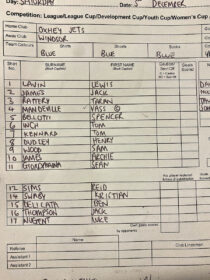 Day: SATURDAY Date: 5 DECEMBER
Competition: League/League Cup/Development Cup/Youth Cup/Women's Cup
Home Club OXHEY JETS
Away Club WINDSOR
Team Colours Shirts Shorts Socks
BLUE BLUE BLUE
Shirt No. SURNAME FIRST NAME
1 LAVIN LEWIS
2 JACK
3 RAFTERY TARAN
4 MANDEVILLE VASS ©
5 SPENCER
6 INCH TOM
7 KENNARD TOM
8 DUDLEY HENRY
9 WOOD SAM
10 JAMES ARCHIE
11 SEAN
12 SIMS REID
14 SWABY KRISTIAN
15 DELICATA BEN
16 THOMPSON JACK
17 NUGENT LUKE
Own goals scored by opponents
Name
Referee
Assistant 1
Assistant 2